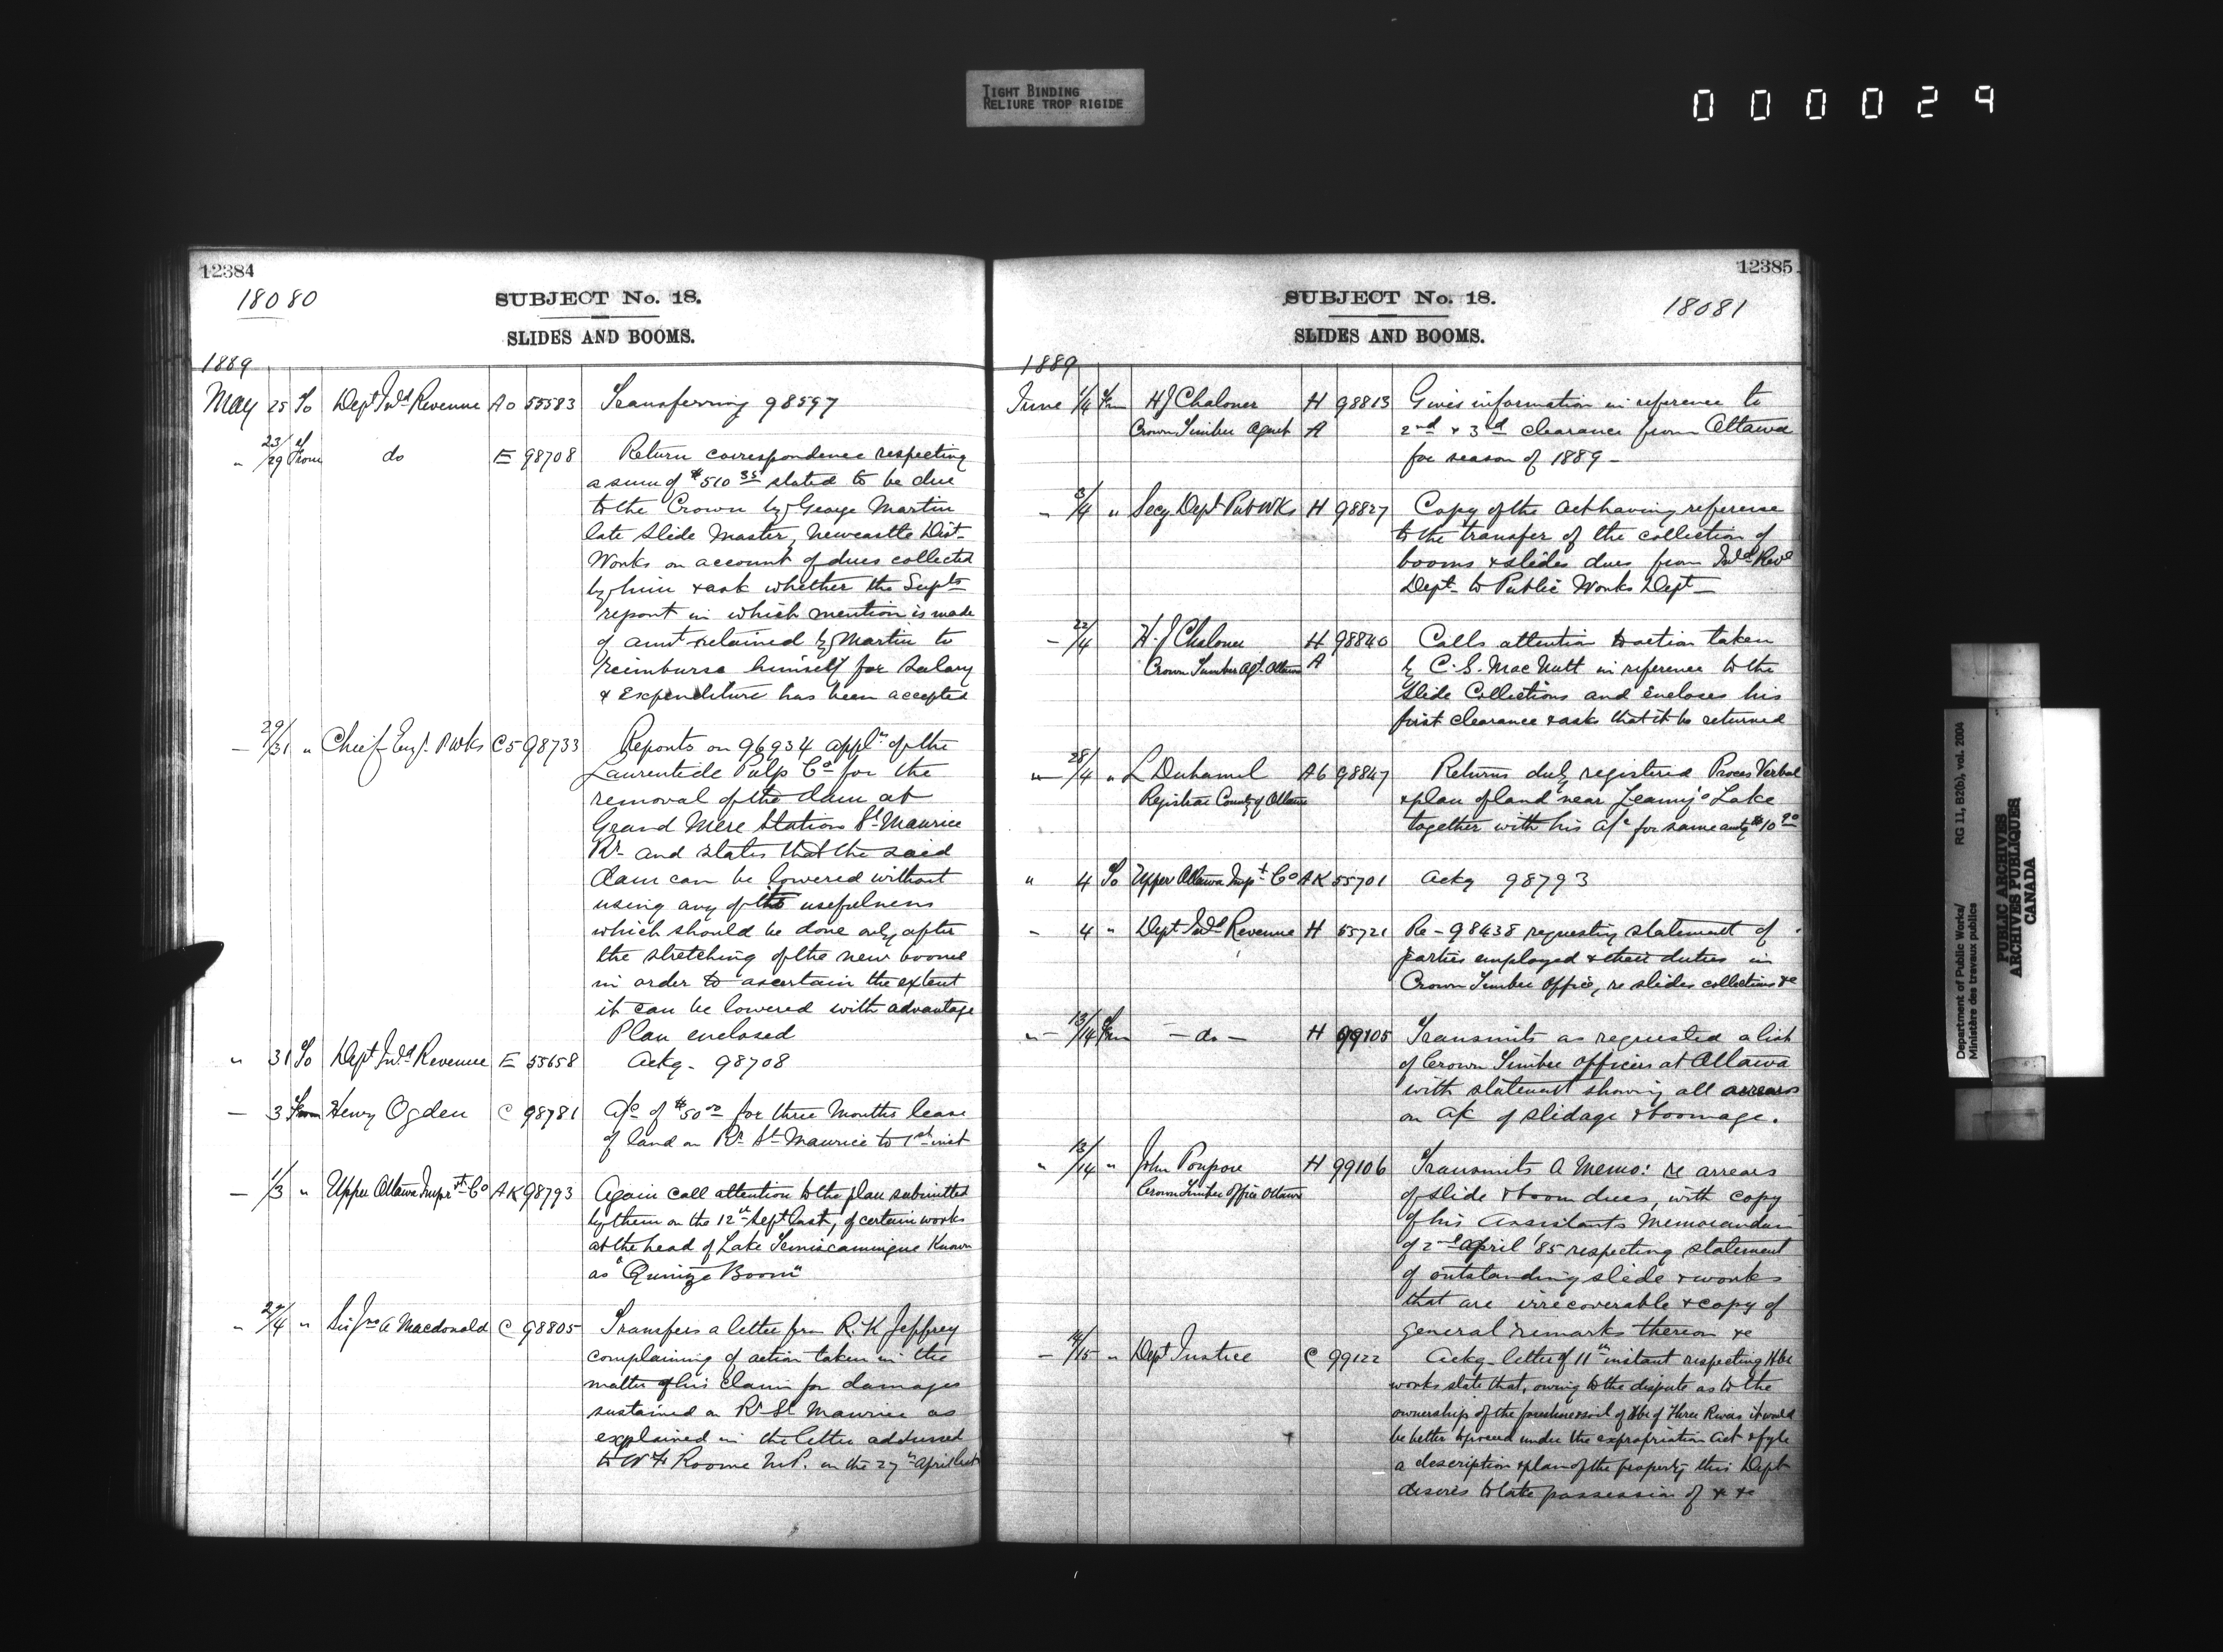 TIGHT BINDING
RELIURE TROP RIGIDE
000029
12384
18080
SUBJECT No. 18.
SLIDES AND BOOMS.
1889
May 25 To Dept Inld Revenue A0 55583 Transferring 98597
" 23/29 From do E 98708 Return correspondence respecting
a sum of $510 35 stated to be due
to the Crown by George Martin
late Slide Master, Newcastle Dist
Works on account of dues collected
by him & ask whether the Supts
report in which mention is made
of amt retained by Martin to
reimburse himself for Salary
& Expenditure has been accepted
— 29/31 " Chief Engr. P Wks C5 98733 Reports on 96934 appln of the
Laurentide Pulp Co for the
removal of the dam at
Grand Mere Station St Maurice
Rr and states that the said
dam can be lowered without
using any of its usefulness
which should be done only after
the stretching of the new boom
in order to ascertain the extent
it can be lowered with advantage
Plan enclosed
" 31 To Dept Inld Revenue E 55658 Ackg. 98708
— 3 From Henry Ogden C 98781 A/c of $50 00 for three Months lease
of land on Rr St Maurice to 1st inst
— 1/3 " Upper Ottawa Impr't Co AK 98793 Again call attention to the plan submitted
by them on the 12th Sept last, of certain works
at the head of Lake Temiscamingue Known
as "Quinze Boom"
" /4 " Sir Jno A Macdonald C 98805 Transfers a letter from R. K Jeffrey
complaining of action taken in the
matter of his Claim for damages
sustained on Rr St Maurice as
explained in the letter addressed
to W F Roome M.P. on the 27th April last
12385
SUBJECT No. 18.
18081
SLIDES AND BOOMS.
1889
June 1/4 Frm H J Chaloner H 98813 Gives information in reference to
Crown Timber Agent A 2nd & 3rd clearance from Ottawa
for season of 1889 —
— 3/4 " Secy Dept Pub Wks H 98827 Copy of the Act having reference
to the transfer of the collection of
booms & slides dues from Inld Reve
Dept to Public Works Dept —
— 22/4 H. J Chaloner H 98840 Calls attention to action taken
Crown Timber Agt. Ottawa A by C. S. MacNutt in reference to the
Slide Collections and encloses his
first clearance & asks that it be returned
" — 28/4 " L Duhamel A6 98847 Returns duly registered Proces Verbal
Registrar County of Ottawa & plan of land near Leamy's Lake
together with his a/c for same amtg $10 90
" 4 To Upper Ottawa Impt Co AK 55701 Ackg 98793
— 4 " Dept Inld Revenue H 55721 Re — 98438 requesting statement of
parties employed & their duties in
Crown Timber Office, re slides collections &c
" — 13/14 Frm — do — H 99105 Transmits as requested a list
of Crown Timber Officers at Ottawa
with statement showing all arrears
on a/c of slidage & boomage.
" 13/14 " John Poupore H 99106 Transmits a Memo: re arrears
Crown Timber Office Ottawa of slide & boom dues, with copy
of his Assistants Memorandum
of 2nd April '85 respecting statement
of outstanding slide & works
that are irrecoverable & copy of
general remarks thereon &c
— 14/15 " Dept Justice C 99122 Ackg letter of 11th instant respecting Hbr
works state that, owing to the dispute as to the
ownership of the foreshore & soil of Hbr of Three Rivers it would
be better to proceed under the expropriation Act & fyle
a description & plan of the property this Dept
desires to take possession of & &c
Department of Public Works/ RG 11, B2(b), vol. 2004
Ministère des travaux publics
PUBLIC ARCHIVES
ARCHIVES PUBLIQUES
CANADA